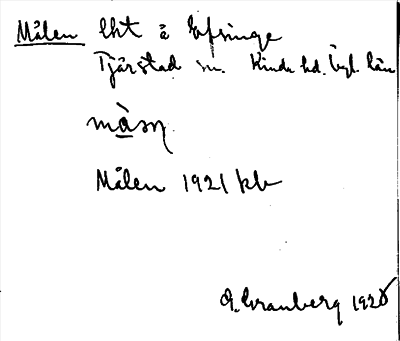 Målen lht å Efsinge
Tjärstad sn. Kinda hd. Ögl. län
Målen 1921 kb
G. Granberg